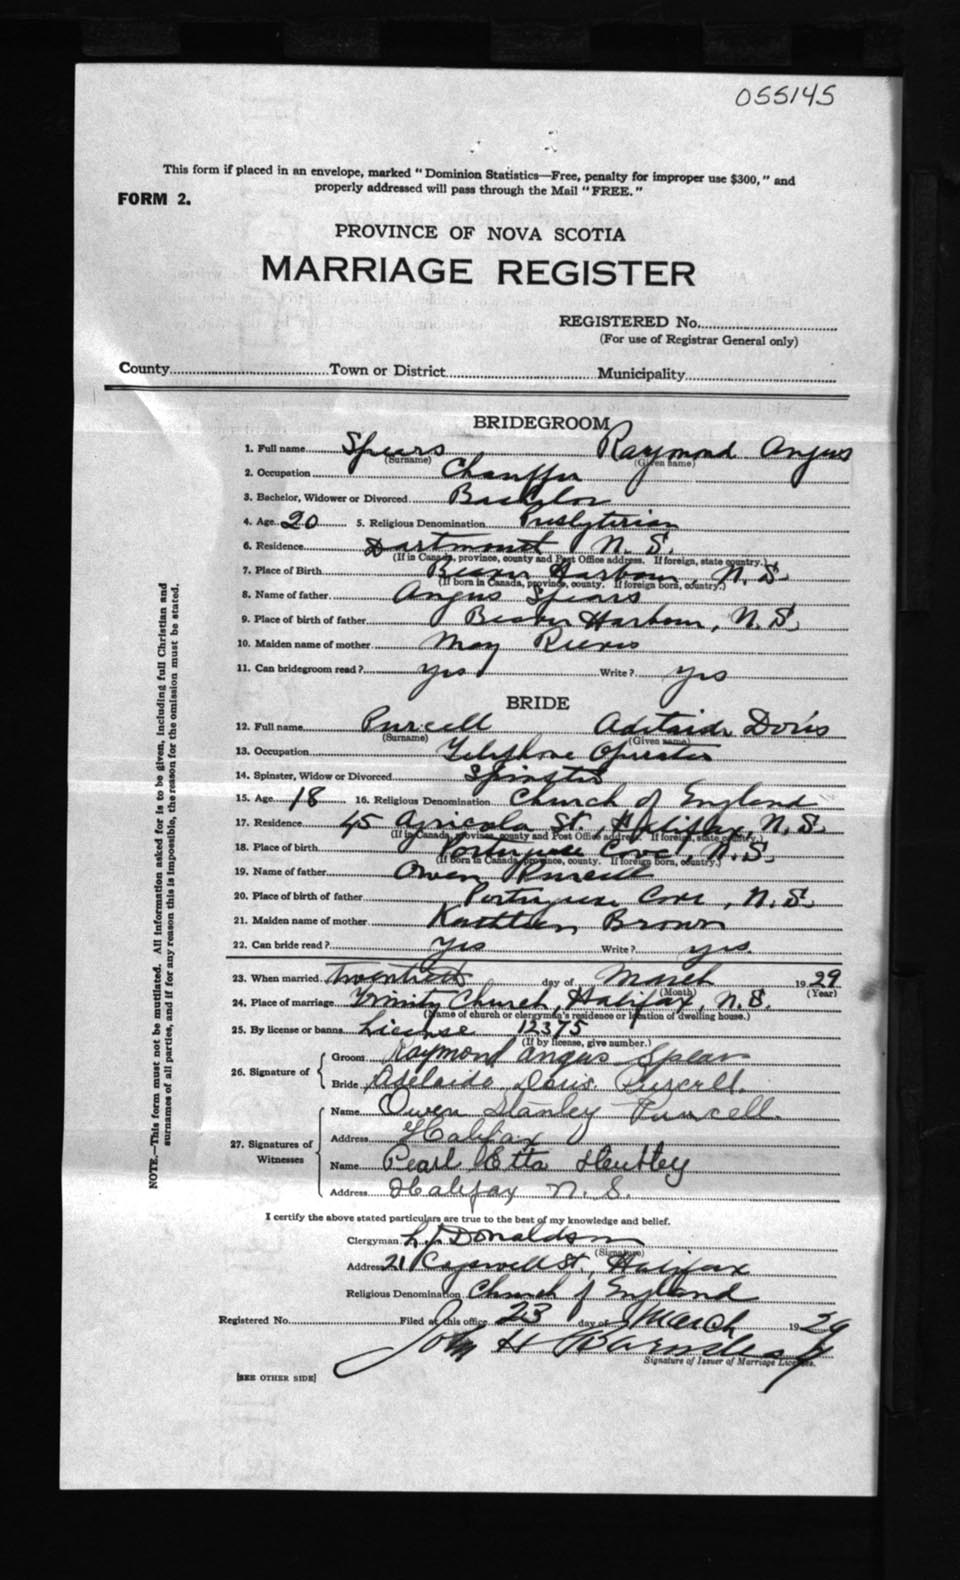 055145
This form if placed in an envelope, marked "Dominion Statistics—Free, penalty for improper use $300," and
properly addressed will pass through the Mail "FREE."
FORM 2.
PROVINCE OF NOVA SCOTIA
MARRIAGE REGISTER
REGISTERED No.
(For use of Registrar General only)
County Town or District Municipality
BRIDEGROOM
1. Full name Spears Raymond Angus
(Surname) (Given name)
2. Occupation Chauffer
3. Bachelor, Widower or Divorced Bachelor
4. Age 20 5. Religious Denomination Presbyterian
6. Residence Dartmouth N. S.
(If in Canada, province, county and Post Office address. If foreign, state country.)
7. Place of Birth Beaver Harbour, N. S.
(If born in Canada, province, county. If foreign born, country.)
8. Name of father Angus Spears
9. Place of birth of father Beaver Harbour, N. S.
10. Maiden name of mother May
11. Can bridegroom read? yes Write? yes
BRIDE
12. Full name Purcell Adelaide Doris
(Surname) (Given name)
13. Occupation Telephone Operator
14. Spinster, Widow or Divorced Spinster
15. Age 18 16. Religious Denomination Church of England
17. Residence 45 Agricola St., Halifax, N. S.
(If in Canada, province, county and Post Office address. If foreign, state country.)
18. Place of birth Portuguese Cove, N.S.
(If born in Canada, province, county. If foreign born, country.)
19. Name of father Owen Purcell
20. Place of birth of father Portuguese Cove, N. S.
21. Maiden name of mother Kathleen Brown
22. Can bride read? yes Write? yes.
23. When married Twentieth day of March 1929
(Month) (Year)
24. Place of marriage Trinity Church, Halifax, N. S.
(Name of church or clergyman's residence or location of dwelling house.)
25. By license or banns License 12375
(If by license, give number.)
26. Signature of
Groom Raymond Angus Spears
Bride Adelaide Doris Purcell.
27. Signatures of Witnesses
Name Owen Stanley Purcell.
Address Halifax
Name Pearl Etta
Address Halifax N. S.
I certify the above stated particulars are true to the best of my knowledge and belief.
Clergyman L J Donaldson
(Signature)
Address 21 Cogswell St, Halifax
Religious Denomination Church of England
Registered No. Filed at this office 23 day of March 1929
John H Barnstead
Signature of Issuer of Marriage Licenses.
[SEE OTHER SIDE]
NOTE.—This form must not be mutilated. All information asked for is to be given, including full Christian and
surnames of all parties, and if for any reason this is impossible, the reason for the omission must be stated.